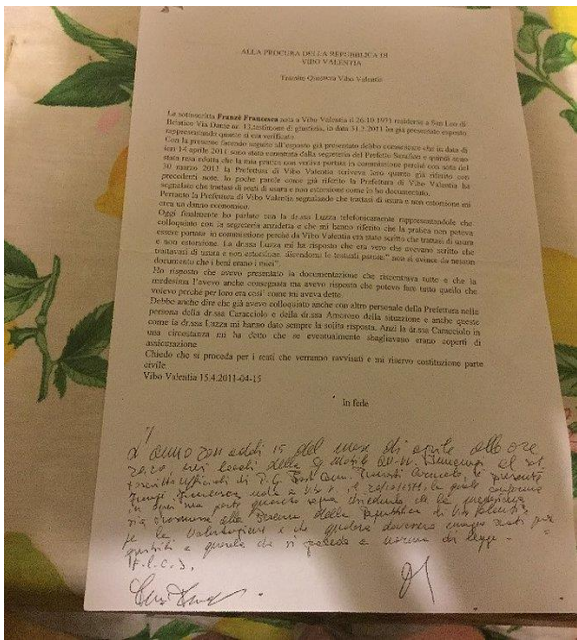 ALLA PROCURA DELLA REPUBBLICA DI
VIBO VALENTIA
Tramite Questura Vibo Valentia
La sottoscritta Franzè Francesca nata a Vibo Valentia il 26.10.1971 residente a San Leo di
Briatico Via Dante nr. 13, testimone di giustizia, in data 31.3.2011 ha già presentato esposto
rappresentando quanto si era verificato.
Con la presente facendo seguito all'esposto già presentato debbo conoscere che in data di
ieri 14 aprile 2011 sono stata contattata dalla segreteria del Prefetto e quindi sono
stata resa edotta che la mia pratica non veniva portata in commissione perché con nota del
30 marzo 2011 la Prefettura di Vibo Valentia scriveva loro quanto già riferito con
precedenti note. In poche parole come già riferito la Prefettura di Vibo Valentia ha
segnalato che trattasi di reati di usura e non estorsione come io ho documentato.
Pertanto la Prefettura di Vibo Valentia segnalando che trattasi di usura e non estorsione mi
crea un danno economico.
Oggi finalmente ho parlato con la dr.ssa Luzza telefonicamente rappresentandole che
colloquiato con la segreteria anzidetta e che mi hanno riferito che la pratica non poteva
essere portata in commissione perché da Vibo Valentia era stato scritto che trattasi di usura
e non estorsione. La dr.ssa Luzza mi ha risposto che era vero che avevano scritto che
trattavasi di usura e non estorsione, dicendomi le testuali parole:" non si evince da nessun
documento che i beni erano i suoi".
Ho risposto che avevo presentato la documentazione che riscontrava tutto e che la
medesima l'avevo anche consegnata ma avevo risposta che potevo fare tutto quello che
volevo perché per loro era così come mi aveva detto.
Debbo anche dire che già avevo colloquiato anche con altro personale della Prefettura nelle
persona della dr.ssa Caracciolo e della dr.ssa Amoroso della situazione e anche queste
come la dr.ssa Luzza mi hanno dato sempre la solita risposta. Anzi la dr.ssa Caracciolo in
una circostanza mi ha detto che se eventualmente sbagliavano erano coperti di
assicurazione
Chiedo che si proceda per i reati che verranno ravvisati e mi riservo costituzione parte
civile
Vibo Valentia 15.4.2011-04-15
In fede
L'anno 2011 addì 15 del mese di aprile alle ore
20.20, nei locali della Sq. Mobile di V.V. innanzi al sot
toscritto ufficiali di P.G. è presente
Franzè Francesca, nata a Vibo V. il 26/10/1971, la quale conferma
in ogni sua parte quanto sopra chiedendo che la medesima
sia trasmessa alla Procura della Repubblica di Vibo Valentia
per le valutazioni
a querela che si procede a norma di legge.
F.L.C.S.